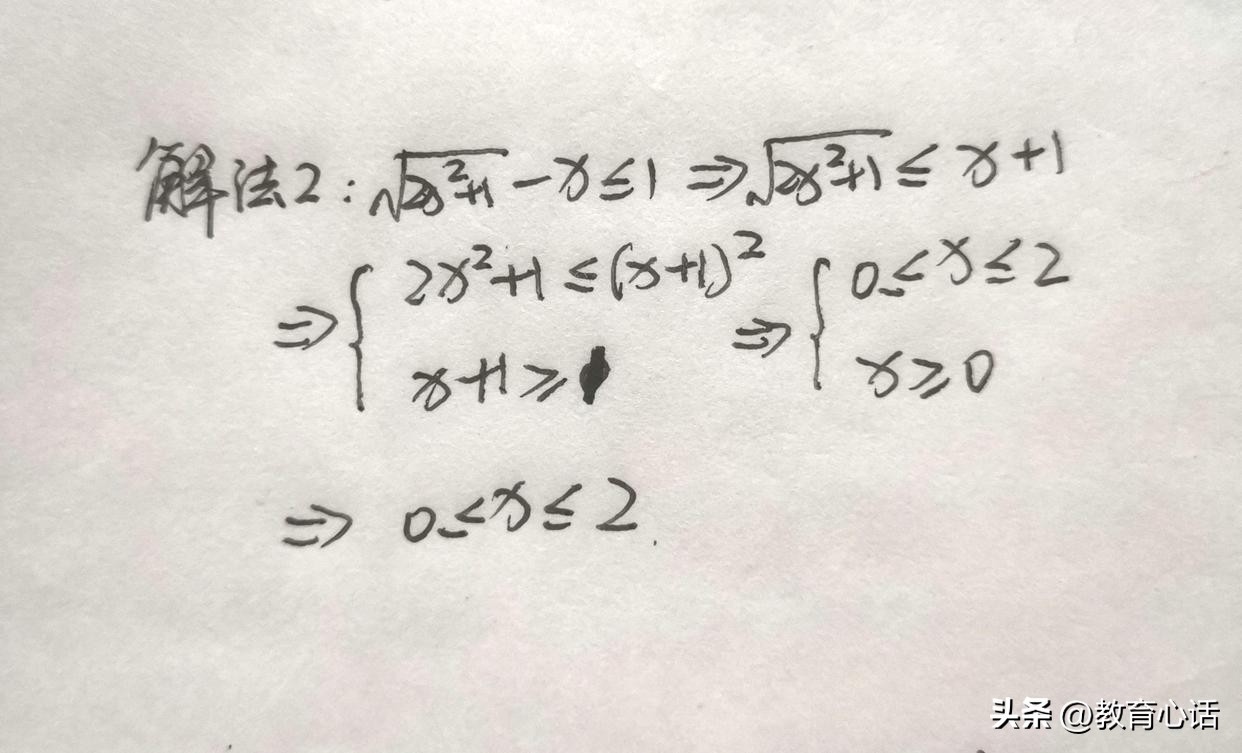 解法2：√(2x²+1) - x ≤ 1 ⇒ √(2x²+1) ≤ x+1
⇒ { 2x²+1 ≤ (x+1)² ⇒ { 0 ≤ x ≤ 2
x+1 ≥ x ≥ 0
⇒ 0 ≤ x ≤ 2.
头条 @教育心话